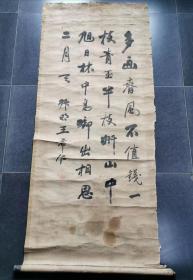 多画春風不值錢一
枝青玉半枝妍山中
旭日林中鳥啣出相思
二月天